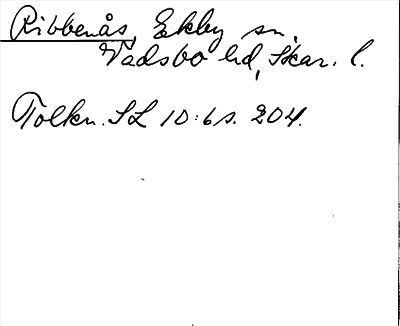 Ribbenås, Ekby sn.
Vadsbo hd, Skar. l.
Tolkn. SL 10:6 s. 204.